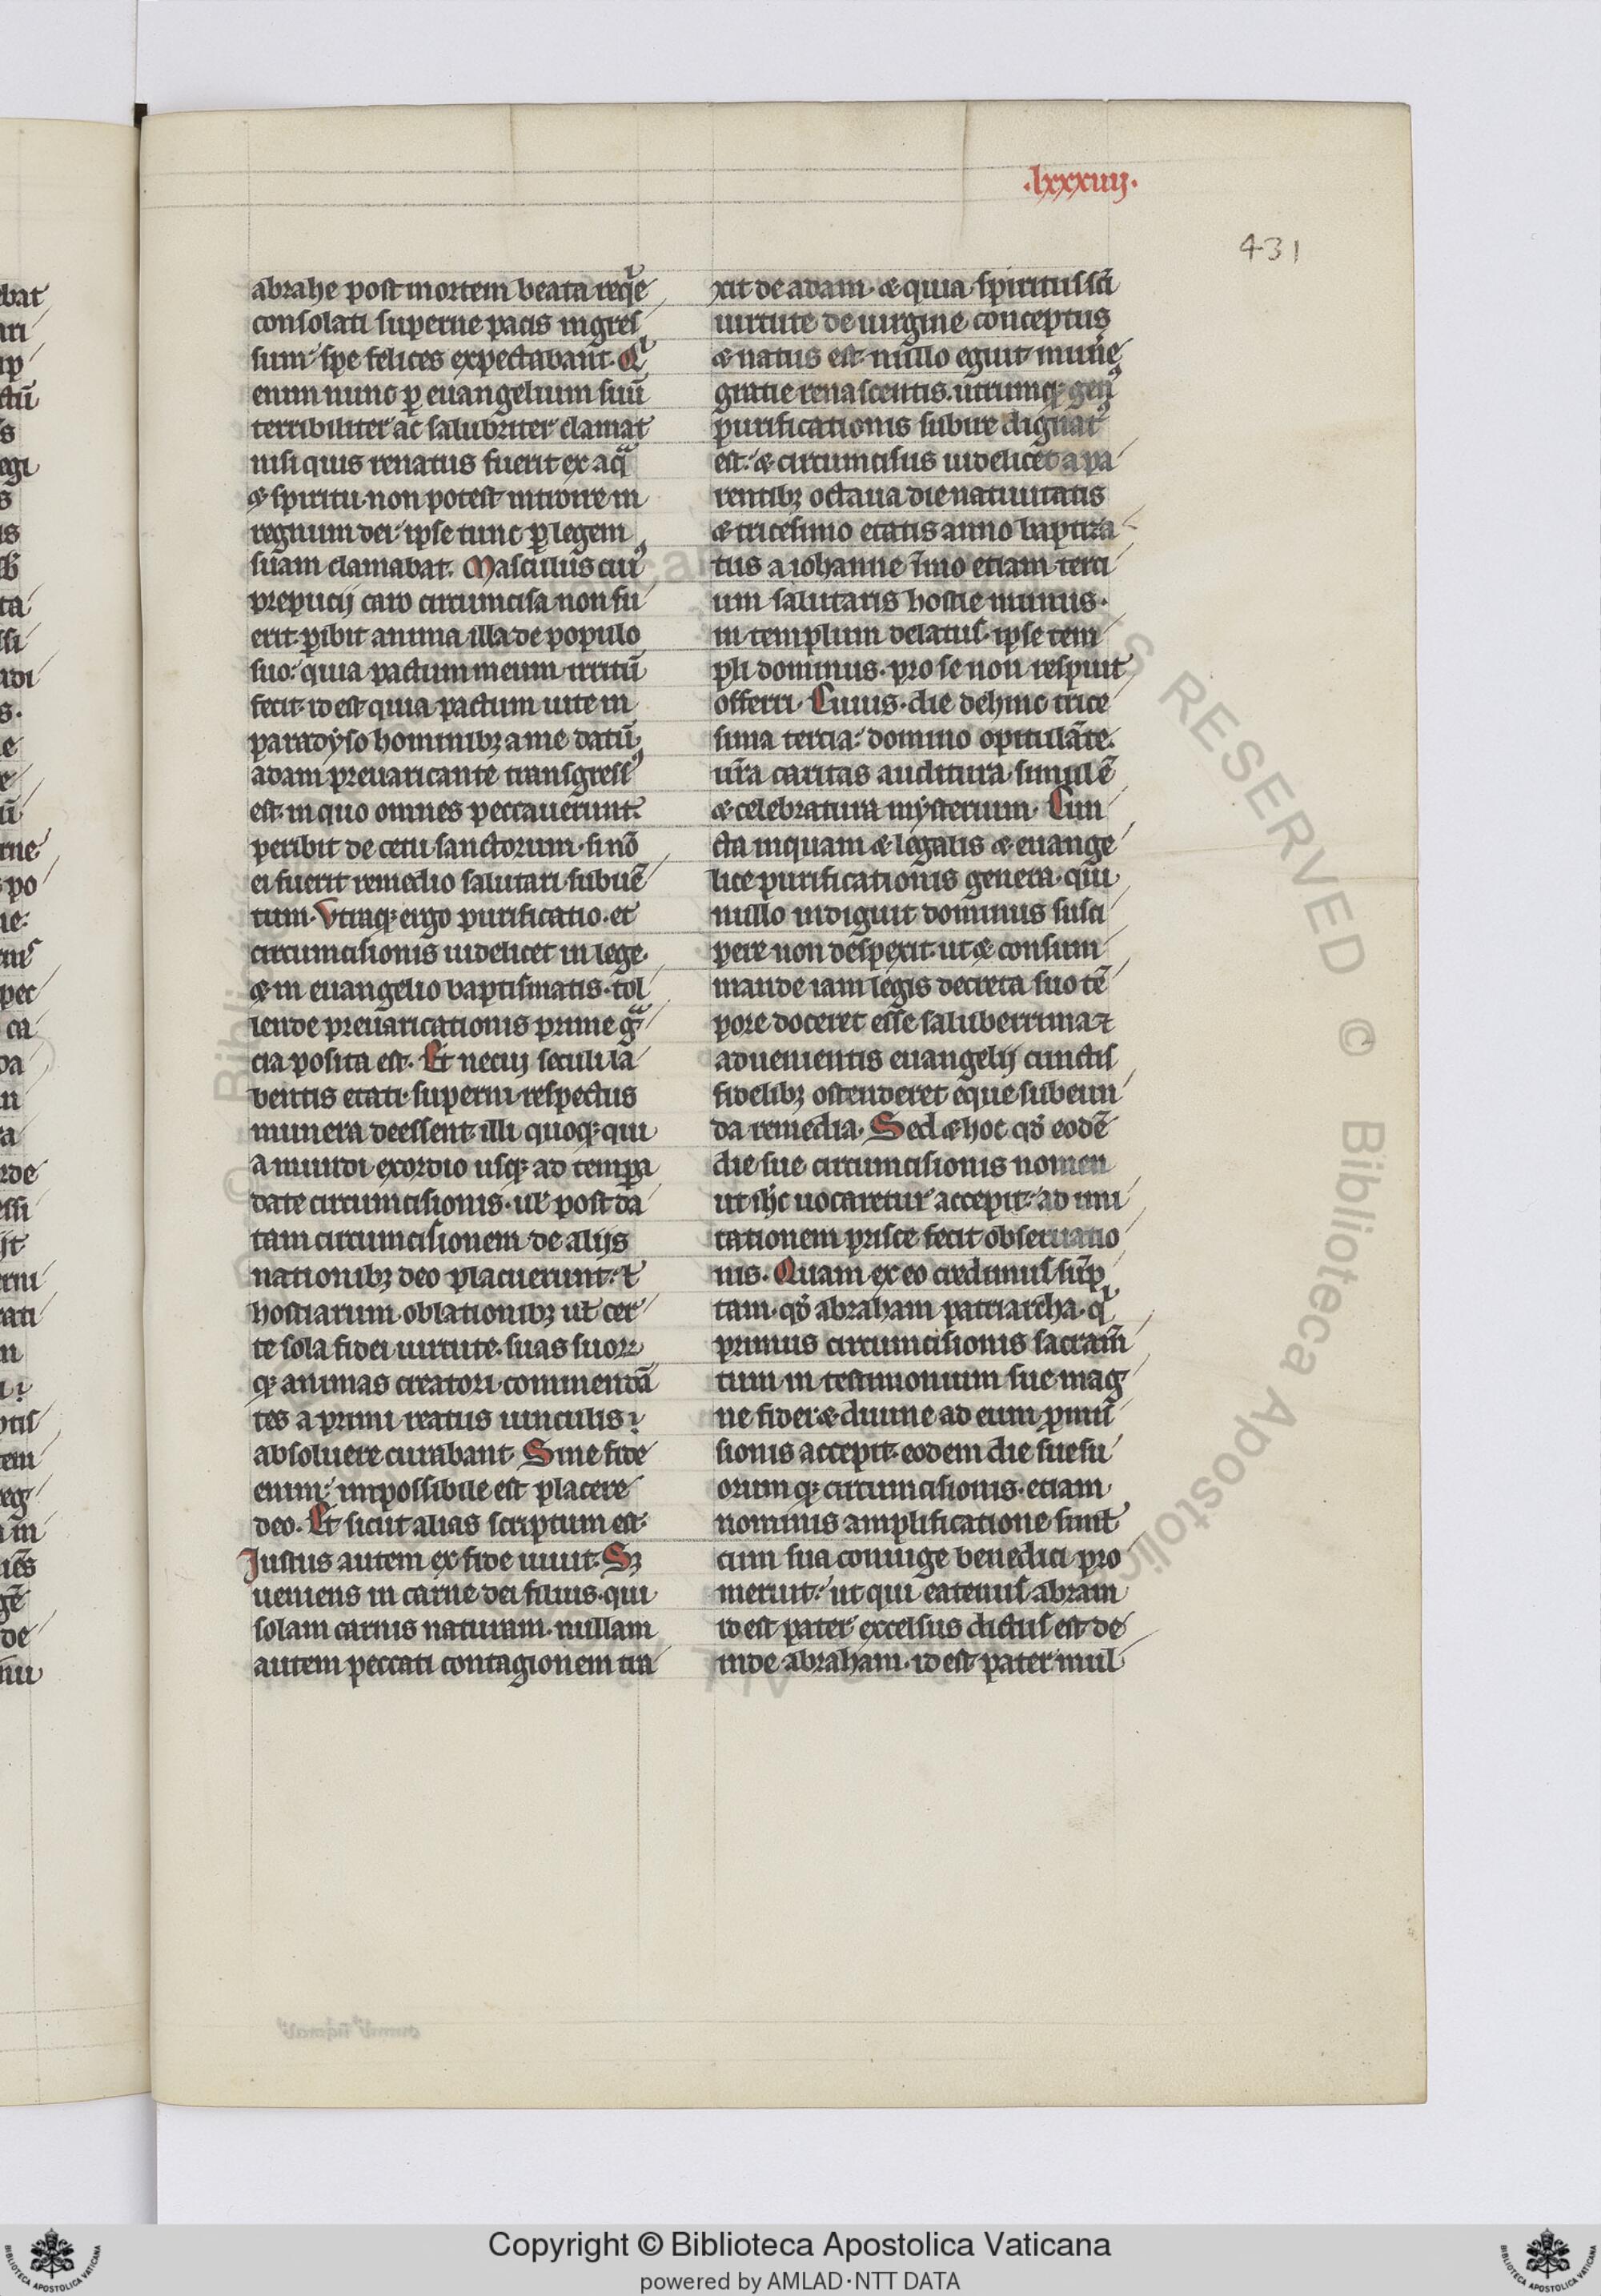 .lxxxiiij.
431
abrahe post mortem beata reqͥe
consolati superne pacis ingres
sum spe felices expectabant. Qͥ
enim nunc ꝑ euangelium suū
terribiliter ac salubriter clamat
nisi quis renatus fuerit ex aqͣ
& spiritu non potest introire in
regnum dei ipse tunc ꝑ legem
suam clamabat. Masculus cuiꝰ
prepucij caro circumcisa non fu
erit ꝑibit anima illa de populo
suo quia pactum meum irritū
fecit id est quia pactum uite in
paradyso hominibꝫ a me datū
adam preuaricante transgressꝰ
est in quo omnes peccauerunt
peribit de cetu sanctorum si nō
ei fuerit remedio salutari subuē
tum. Vtraqꝫ ergo purificatio. et
circumcisionis uidelicet in lege.
& in euangelio baptismatis. tol
lende preuaricationis prime gͣ
cia posita est. Et necuij seculi la
bentis etati superni respectus
munera deessent illi quoqꝫ qui
a mundi exordio usqꝫ ad temꝑa
date circumcisionis. uł post da
tam circumcisionem de alijs
nationibꝫ deo placuerunt ⁊
hostiarum oblationibꝫ uł cer
te sola fidei uirtute. suas suoꝝ
qꝫ animas creatori commendā
tes a primi reatus uinculis
absoluere curabant. Sine fide
enim impossibile est placere
deo. Et sicut alias scriptum est.
Justus autem ex fide uiuit. Sꝫ
ueniens in carne dei filius. qui
solam carnis naturam. nullam
autem peccati contagionem tra
xit de adam. & quia spiritus sc̄i
uirtute de uirgine conceptus
& natus est nullo eguit mun̄e
gratie renascentis. utrumqꝫ genꝰ
purificationis subire dignatꝰ
est. & circumcisus uidelicet a pa
rentibꝫ octaua die natiuitatis
& tricesimo etatis anno baptiza
tus a iohanne īmo etiam terci
um salutaris hostie munus.
in templum delatus. ipse tem
pli dominus. pro se non respuit
offerri. Cuius. die dehinc trice
sima tercia domino opitulāte.
ur̄a caritas auditura. simul ē
& celebratura mysterium. Cun
cta inquam & legalis & euange
lice purificationis genera. quī
nullo indiguit dominus susci
pere non despexit. ut & consum
mande iam legis decreta suo tē
pore doceret esse saluberrima ⁊
aduenientis euangelij cunctis
fidelibꝫ ostenderet eque subeun
da remedia. Sed & hoc qd̓ eodē
die sue circumcisionis nomen
ut ih̄c uocaretur accepit. ad imi
tationem prisce fecit obseruatio
nis. Quam ex eo credimus sūp
tam. qd̓ abraham patriarcha. qͥ
primus circumcisionis sacram̄
tum in testimonium sue mag
ne fidei & diuine ad eum ꝓmis̄
sionis accepit. eodem die sue su
orum qꝫ circumcisionis. etiam
nominis amplificatione simł
cum sua coniuge benedici pro
meruit. ut qui eatenus abram
id est pater excelsus dictus est de
inde abraham. id est pater mul